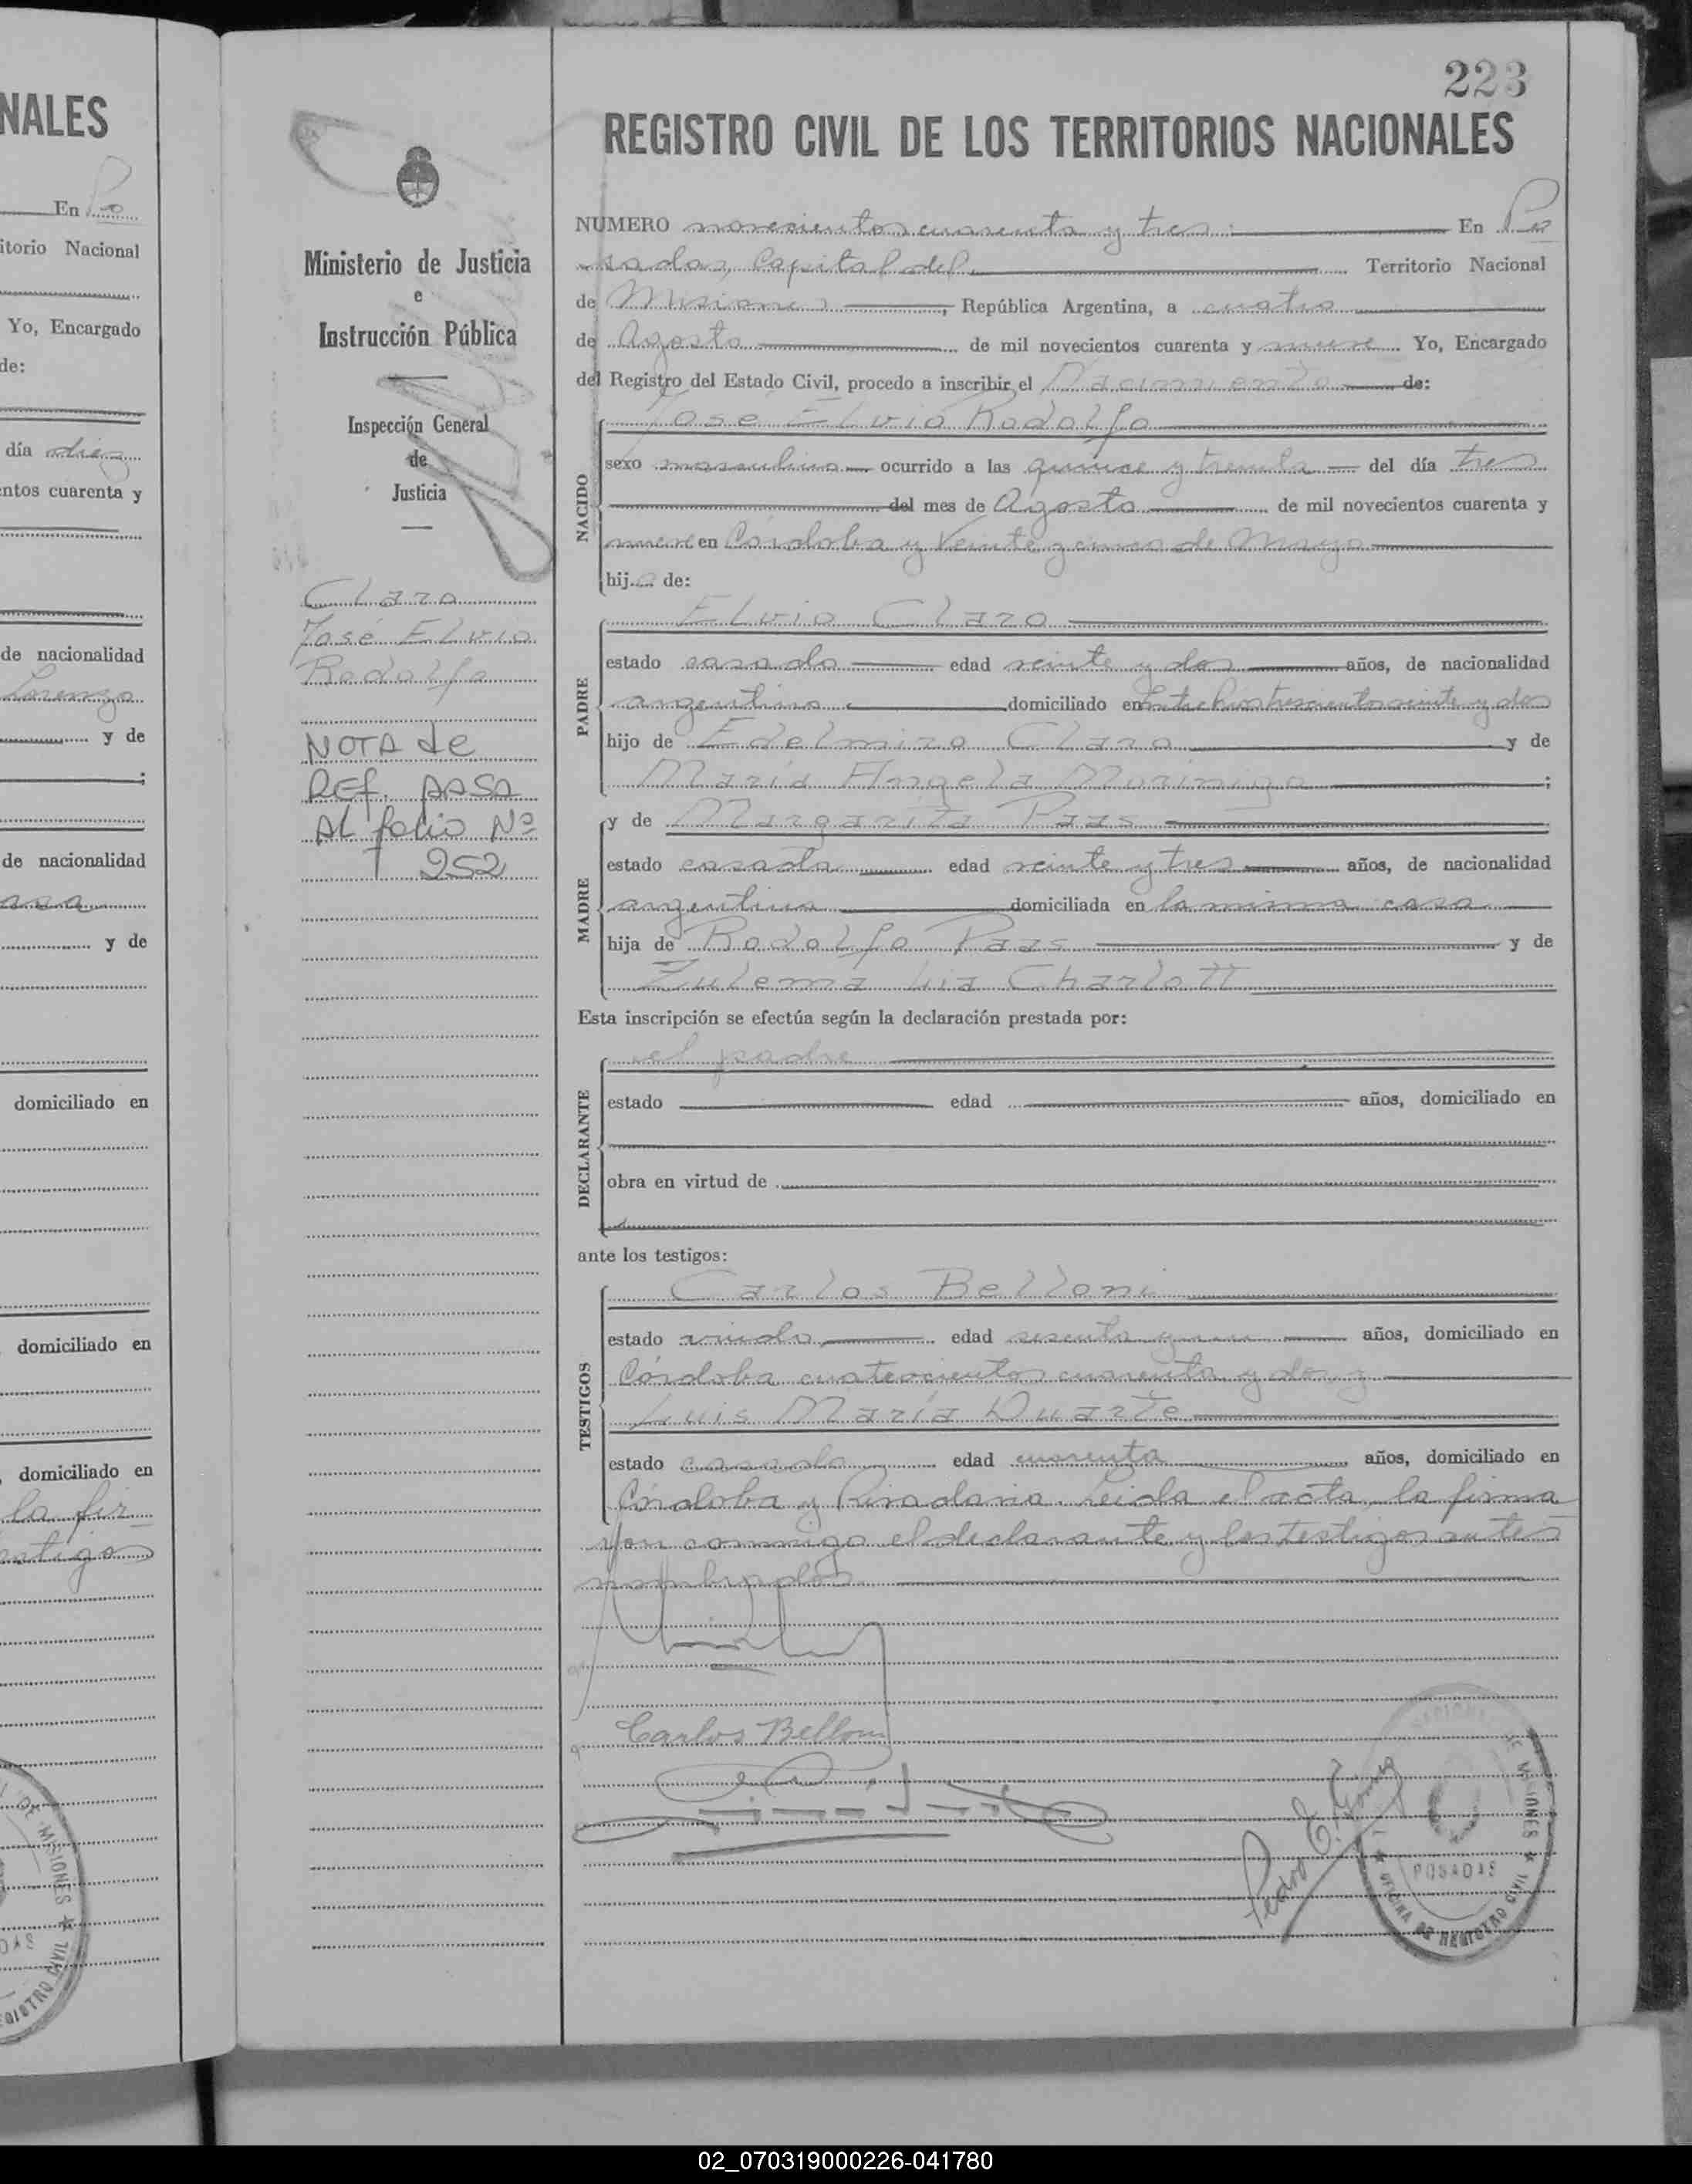 NALES
En Po
itorio Nacional
Yo, Encargado
de:
día diez
ntos cuarenta y
de nacionalidad
Lorenzo
y de
;
de nacionalidad
y de
domiciliado en
domiciliado en
, domiciliado en
la fir
estigos
223
REGISTRO CIVIL DE LOS TERRITORIOS NACIONALES
Ministerio de Justicia
e
Instrucción Pública
Inspección General
de
Justicia
Claro
José Elvio
Rodolfo
NOTA de
REf. PASA
AL folio Nº
252
NUMERO novecientos cuarenta y tres. En Po
sadas, Capital del Territorio Nacional
de Misiones, República Argentina, a cuatro
de Agosto de mil novecientos cuarenta y nueve Yo, Encargado
del Registro del Estado Civil, procedo a inscribir el Nacimiento de:
José Elvio Rodolfo
NACIDO
sexo masculino ocurrido a las quince y treinta del día tres
del mes de Agosto de mil novecientos cuarenta y
nueve en Córdoba y Veinte y cinco de Mayo
hijo de:
Elvio Claro
PADRE
estado casado edad veinte y dos años, de nacionalidad
argentina domiciliado en Entre Rios trescientos veinte y dos
hijo de Edelmiro Claro y de
María Angela Morinigo ;
y de Margarita Paas
MADRE
estado casada edad veinte y tres años, de nacionalidad
argentina domiciliada en la misma casa
hija de Rodolfo Paas y de
Zulema Lia Charlott
Esta inscripción se efectúa según la declaración prestada por:
el padre
DECLARANTE
estado edad años, domiciliado en
obra en virtud de
ante los testigos:
Carlos Belloni
TESTIGOS
estado viudo, edad sesenta y un años, domiciliado en
Córdoba cuatrocientos cuarenta y dos y
Luis María Duarte
estado casado edad cuarenta años, domiciliado en
Córdoba y Rivadavia. Leida el acta, la firma
ron conmigo el declarante y los testigos antes
nombrados
Carlos Belloni
Pedro E. Gómez
NACIONAL DE MISIONES
POSADAS
OFICINA DE REGISTRO CIVIL
02_070319000226-041780